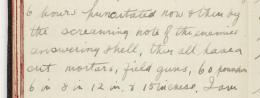 6 hours punctuated now & then by
the screaming note of the enemies
answering shell, then all hands
out. mortars, field guns, 60 pounders
6 in 8 in 12 in. & 15 inches, I am